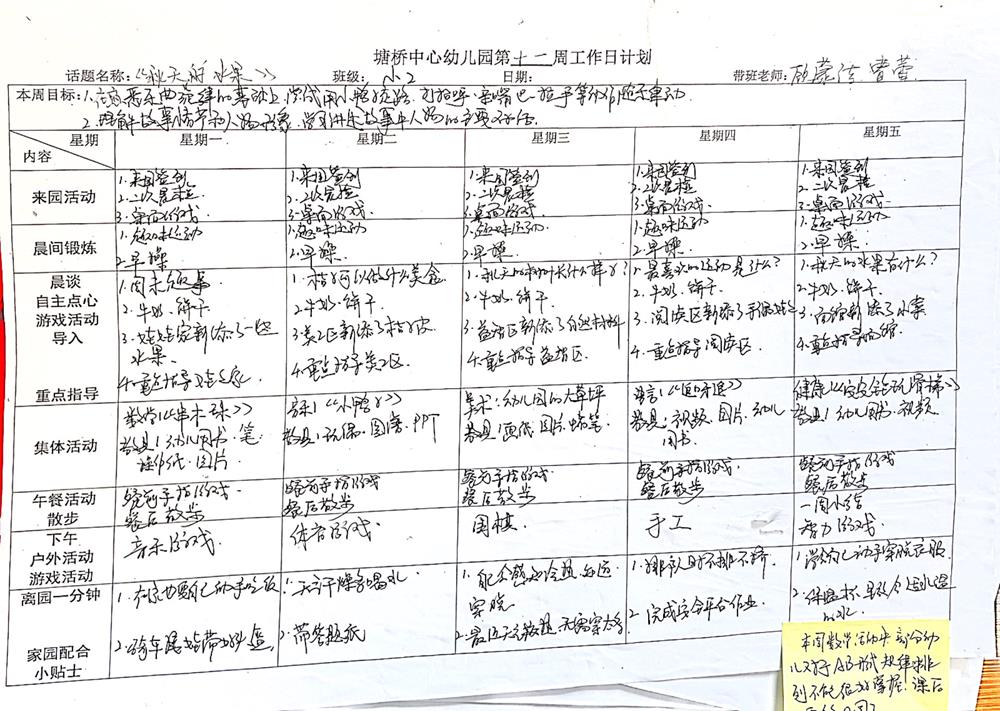 塘桥中心幼儿园第十一周工作日计划
话题名称：《秋天的水果》 班级：小2 日期： 带班老师：
本周目标：1.
2.理解故事情节和人物形象，
星期 星期一 星期二 星期三 星期四 星期五
内容
来园活动
1.来园签到 1.来园签到 1.来园签到 1.来园签到 1.来园签到
2.二次晨检 2.二次晨检 2.二次晨检 2.二次晨检 2.二次晨检
3.桌面游戏 3.桌面游戏 3.桌面游戏 3.桌面游戏 3.桌面游戏
晨间锻炼
1.趣味运动 1.趣味运动 1.趣味运动 1.趣味运动 1.趣味运动
2.早操 2.早操 2.早操 2.早操 2.早操
晨谈
自主点心
游戏活动
导入
重点指导
1.周末趣事
2.牛奶、饼干
3.娃娃家新添了一些水果。
4.重点指导娃娃家
1.桔子可以做什么美食
2.牛奶、饼干
3.美工区新添了桔子皮
4.重点指导美工区
1.秋天的树叶长什么样子？
2.牛奶、饼干
3.益智区新添了自然材料
4.重点指导益智区。
1.最喜欢的运动是什么？
2.牛奶、饼干。
3.阅读区新添了手偶
4.重点指导阅读区
1.秋天的水果有什么？
2.牛奶、饼干。
集体活动
数学：《串木珠》
幼儿用书、笔
操作纸、图片
音乐：《小鸭子》
教具：玩偶、图谱、PPT
美术：幼儿园的大草坪
教具：画纸、图片、蜡笔
教具：视频、图片、幼儿
用书
健康：《安全玩滑梯》
教具：幼儿用书、视频
午餐活动
散步
餐前手指游戏 餐前手指游戏 餐前手指游戏 餐前手指游戏 餐前手指游戏
餐后散步 餐后散步 餐后散步 餐后散步 餐后散步
下午
户外活动
游戏活动
音乐游戏。 体育游戏 围棋。 手工
一周小结
智力游戏。
离园一分钟
1.在家也要自己动手吃饭
1.天干燥多喝水
1.排队时不推不挤。
家园配合
小贴士
2.带餐巾纸
2.完成安全平台作业
本周数学活动中部分幼
儿对于AB模式规律排
列不能很好掌握，课后